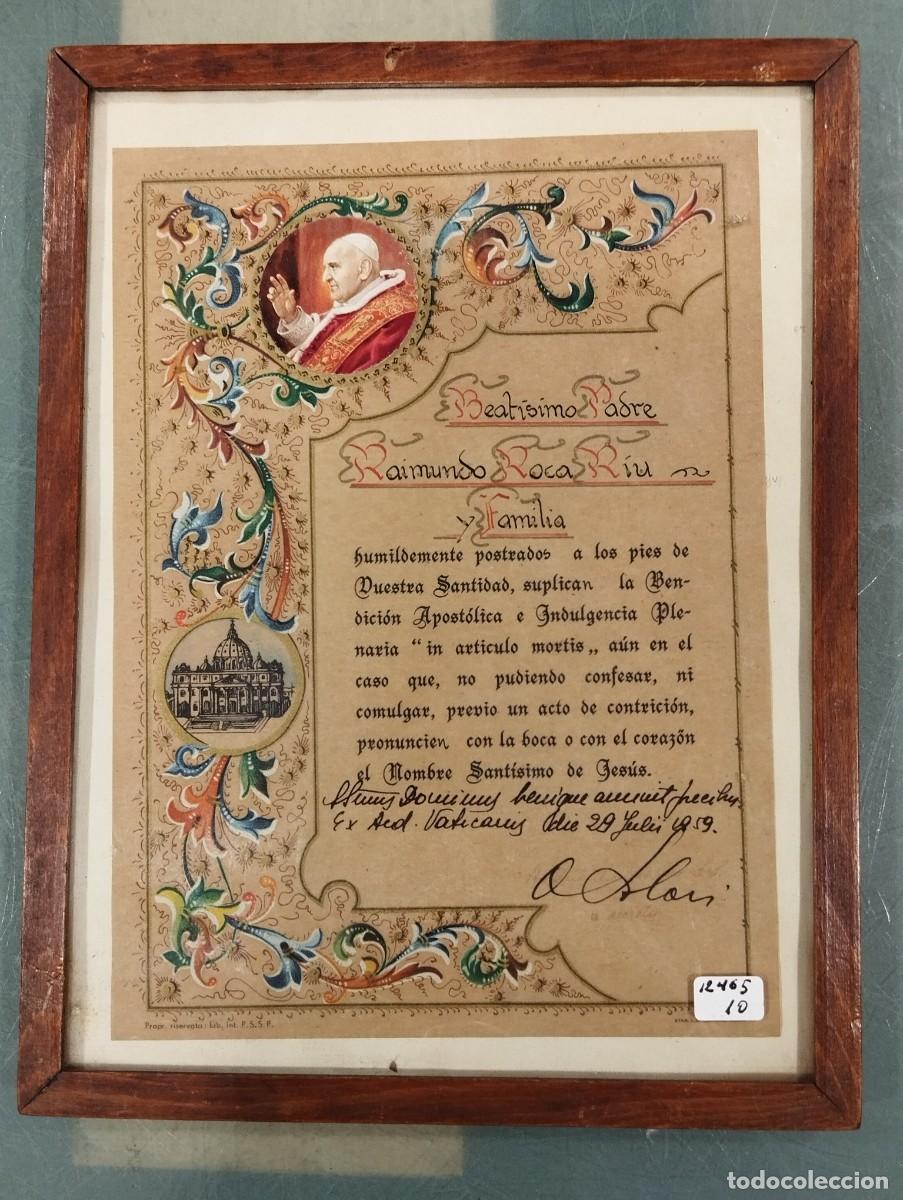 Beatísimo Padre
Raimundo Roca Riu
y Familia
humildemente postrados a los pies de
Vuestra Santidad, suplican la Ben-
dición Apostólica e Indulgencia Ple-
naria “in articulo mortis„ aún en el
caso que, no pudiendo confesar, ni
comulgar, previo un acto de contrición,
pronuncien con la boca o con el corazón
el Nombre Santísimo de Jesús.
Dominus benigne annuit precibus
Ex Aed. Vaticanis die 29 Julii 1959.
12465
10
Propr. riservata: Lib. Int. P.S.S.P.
todocoleccion